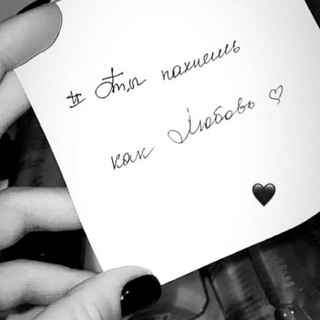 # Ты пахнешь
как Любовь ♡
🖤